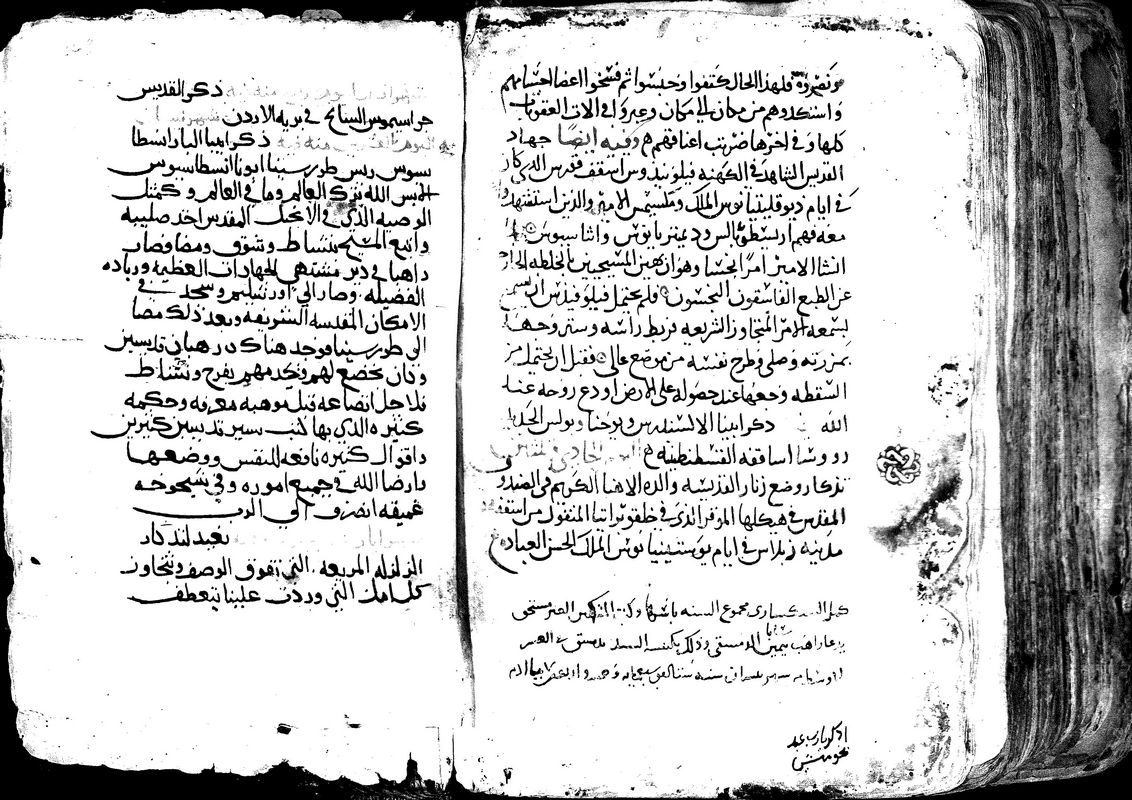 ونصروه فلهذا الحال كتفوا وحبسوا ثم فسخوا اعضا اجسامهم
واستكدوهم من مكان الى مكان وعبروا في الات العقوبات
كلها وفي اخرها ضربت اعناقهم وفيه ايضا جهاد
القديس الشاهد في الكهنه فيلونيدوس اسقف قبرس الذي كان
في ايام ديوقليتيانوس الملك ومكسيمس الامير والذين استشهدوا
معه فهم ارسطوقالس وديمتريانوس واثناسيوس
انشا الامير امرا بخسا وهو ان يهين المسيحيين بالخلطه الخارجه
عن الطبع الفاسقون النجسون فلم يحتمل فيلونيدس ان يسمع
بسمعه الامر المتجاوز الشريعه فربط راسه وستر وجهه
بمزرته وصلى وطرح نفسه من موضع عالي فقبل ان يحتمل من
السقطه وجعها عند حصوله على الارض اودع روحه عند
الله ذكر ابينا الاكسندرس ويوحنا وبولس الجديد
رووسا اساقفه القسطنطينيه
تذكار وضع زنار القديسه والده الاهنا الكريم في الصندوق
المقدس في هيكلها الموقر الذي في خلقوبراتيا المنقول من اسقفيه
مدينه زيلاس في ايام يوستينيانوس الملك الحسن العباده
كمل السنكساري مجموع السنه باسرها
يدعا راهب الدمشقي وذلك بكنيسه السيده بدمشق
سنه سته الف سبعمايه وخمسه واربعين لابينا ادم
اذكر يارب عبدك
ذكر القديس
جراسيموس السايح في بريه الاردن
ذكر ابينا البار انسطا
سيوس ريس طور سينا ابونا انسطاسيوس
لابس الله ترك العالم وما في العالم وكمثل
الوصيه الذي في الانجيل المقدس اخد صليبه
واتبع المسيح بنشاط وشوق ومضا وصار
راهبا في دير مشتهي الجهادات العظيمه وزياده
الفضيله وصار الى اورشليم وسجد في
الامكان المقدسه الشريفه وبعد ذلك مضا
الى طور سينا فوجد هناك رهبان قديسين
وكان يخضع لهم ويخدمهم بفرح ونشاط
فلاجل اتضاعه قبل موهبه معرفه وحكمه
كثيره الذي بها كتب سير قديسين كثيرين
واقوال كثيره نافعه للنفس ووضعها
وارضا الله في جميع اموره وفي شيخوخه
عميقه انصرف الى الرب
نعيد لتذكار
الزلزله المريعه التي تفوق الوصف وتتجاوز
كل امل التي وردت علينا بتعطف